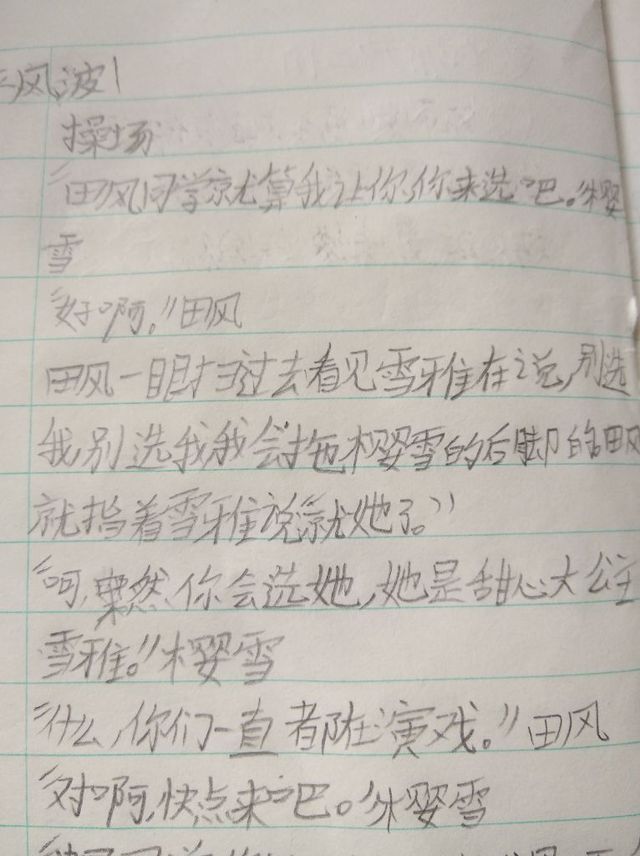 风波1
操场
“田风同学就算我让你你来选吧。”樱
雪
“好啊。”田风
田风一眼扫过去看见雪雅在说,别选
我别选我我会拖樱雪的后脚的田风
就指着雪雅说就她了。”
“呵,果然你会选她,她是甜心大公主
雪雅。”樱雪
“什么,你们一直都在演戏。”田风
“对啊,快点来吧。”樱雪